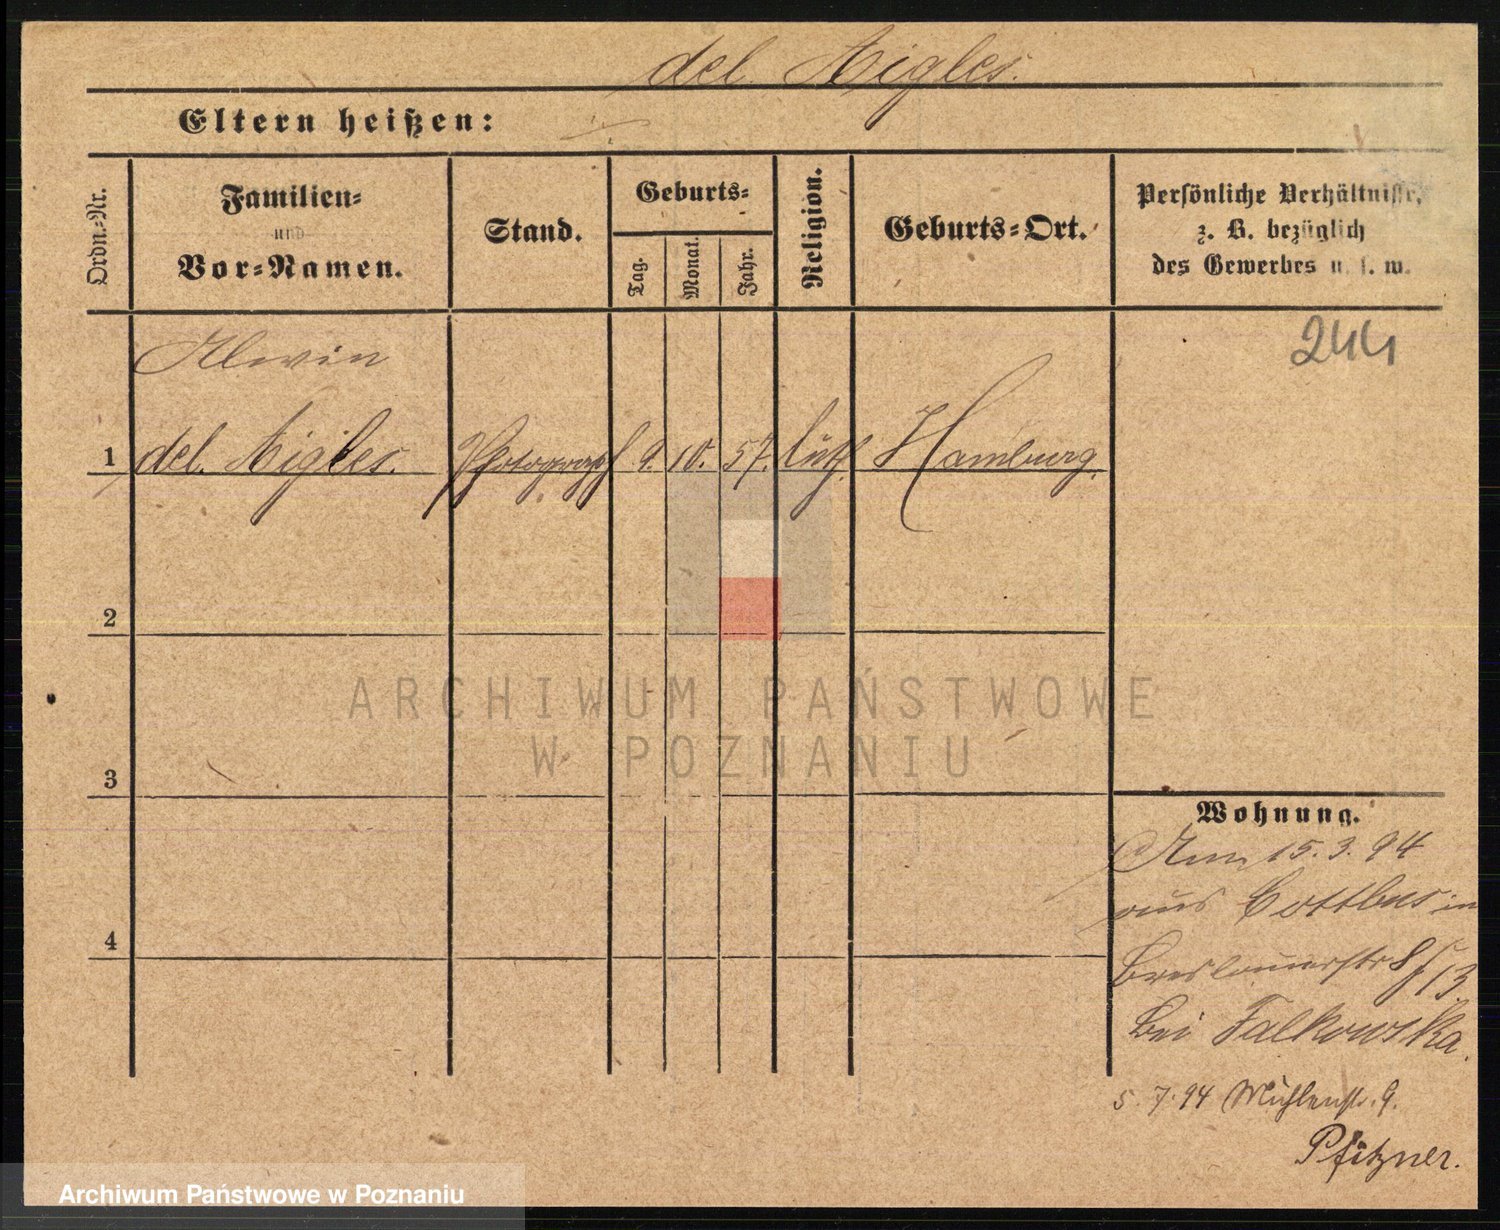 del. Aigles.
Eltern heißen:
Ordn.-Nr.
Familien-
und
Vor-Namen.
Stand.
Geburts-
Tag.
Monat.
Jahr.
Religion.
Geburts-Ort.
Persönliche Verhältnisse,
z. B. bezüglich
des Gewerbes u. s. w.
244
Alwin
1 del. Aigles. Photograph 9. 10. 57. luth. Hamburg.
2
3
4
ARCHIWUM PAŃSTWOWE
W POZNANIU
Wohnung.
15. 3. 94
aus Cottbus in
Breslauerstr
bei Falkowska.
5. 7. 94 Mühlenstr. 9.
Pfitzner.
Archiwum Państwowe w Poznaniu